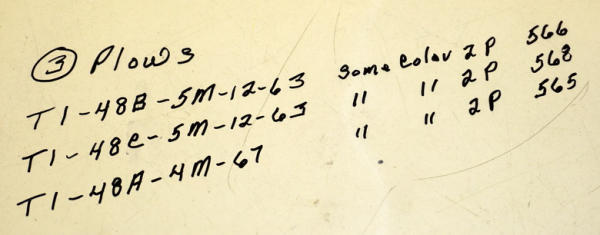 ③ Plows
T1-48B-5M-12-63 Some Color 2P 566
T1-48C-5M-12-63 " " 2P 568
T1-48A-4M-67 " " 2P 565